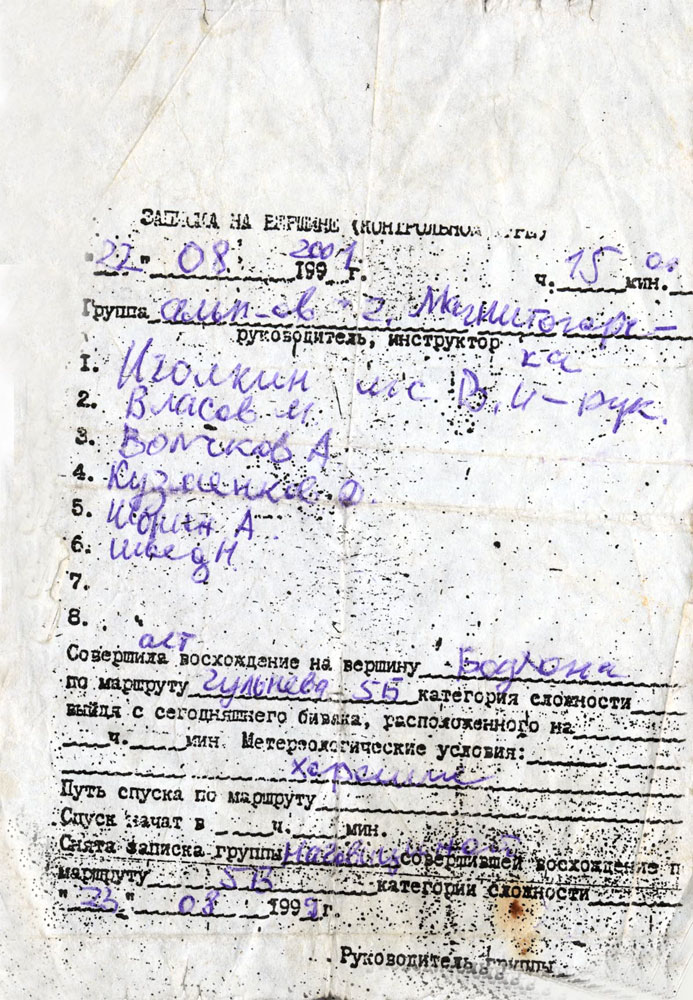 ЗАПИСКА НА ВЕРШИНЕ (КОНТРОЛЬНОМ ТУРЕ)
"22" 08 199 2001 г. ч. 15 00 мин.
Группа альп-ов г. Магнитогорс-
руководитель, инструктор ка
1. Иголкин мс В.И - рук.
2. Власов М
3. Волчков А
4. Кузменков О.
5. Шорин А
6. Швед Н
7.
8.
Совершила восхождение на вершину Бодхона
по маршруту 5Б категория сложности
выйдя с сегодняшнего бивака, расположенного на
ч. мин. Метереологические условия:
хорошие
Путь спуска по маршруту
Спуск начат в ч. мин.
Снята записка группы совершившей восхождение п
маршруту 5Б категории сложности
"23" 08 1999 г.
Руководитель группы